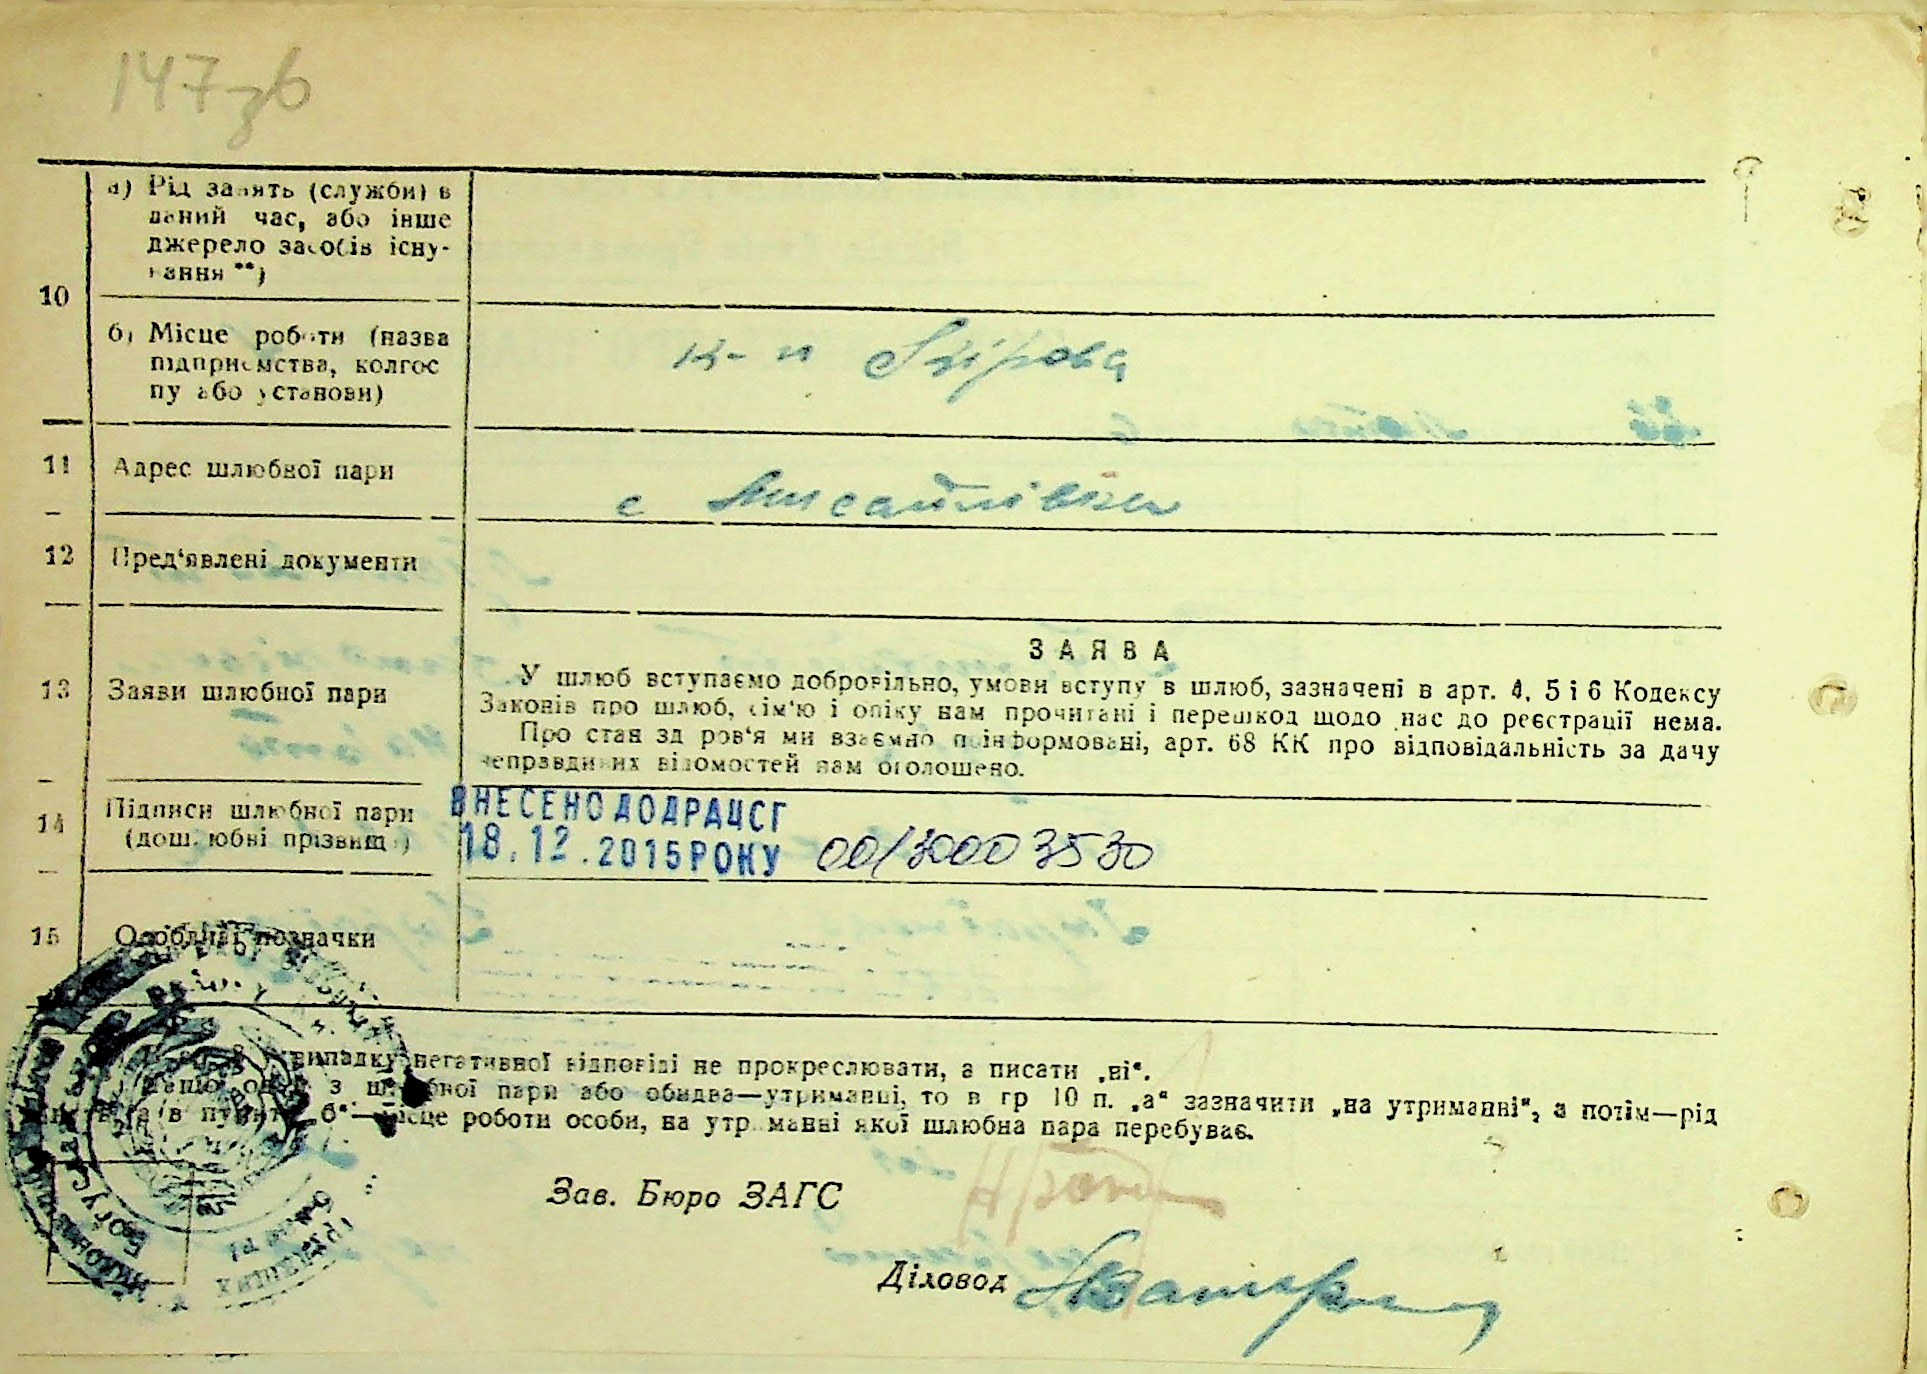 147зв
10
а) Рід занять (служби) в
даний час, або інше
джерело засобів існу-
вання **)
б) Місце роботи (назва
підприємства, колгос
пу або установи)
к-п Кірова
11
Адрес шлюбної пари
с Мисайлівка
12
Пред'явлені документи
13
Заяви шлюбної пари
ЗАЯВА
У шлюб вступаємо добровільно, умови вступу в шлюб, зазначені в арт. 4, 5 і 6 Кодексу
Законів про шлюб, сім'ю і опіку нам прочитані і перешкод щодо нас до реєстрації нема.
Про стан здоров'я ми взаємно поінформовані, арт. 68 КК про відповідальність за дачу
неправдивих відомостей нам оголошено.
14
Підписи шлюбної пари
(дошлюбні прізвища)
ВНЕСЕНО ДО ДРАЦСГ
18.12.2015 РОКУ 00130003530
15
Особливі позначки
випадку негативної відповіді не прокреслювати, а писати „ні“.
з шлюбної пари або обидва—утриманці, то в гр 10 п. „а“ зазначити „на утриманні“, а потім—рід
в пункті „б“—місце роботи особи, на утриманні якої шлюбна пара перебуває.
Зав. Бюро ЗАГС
Діловод